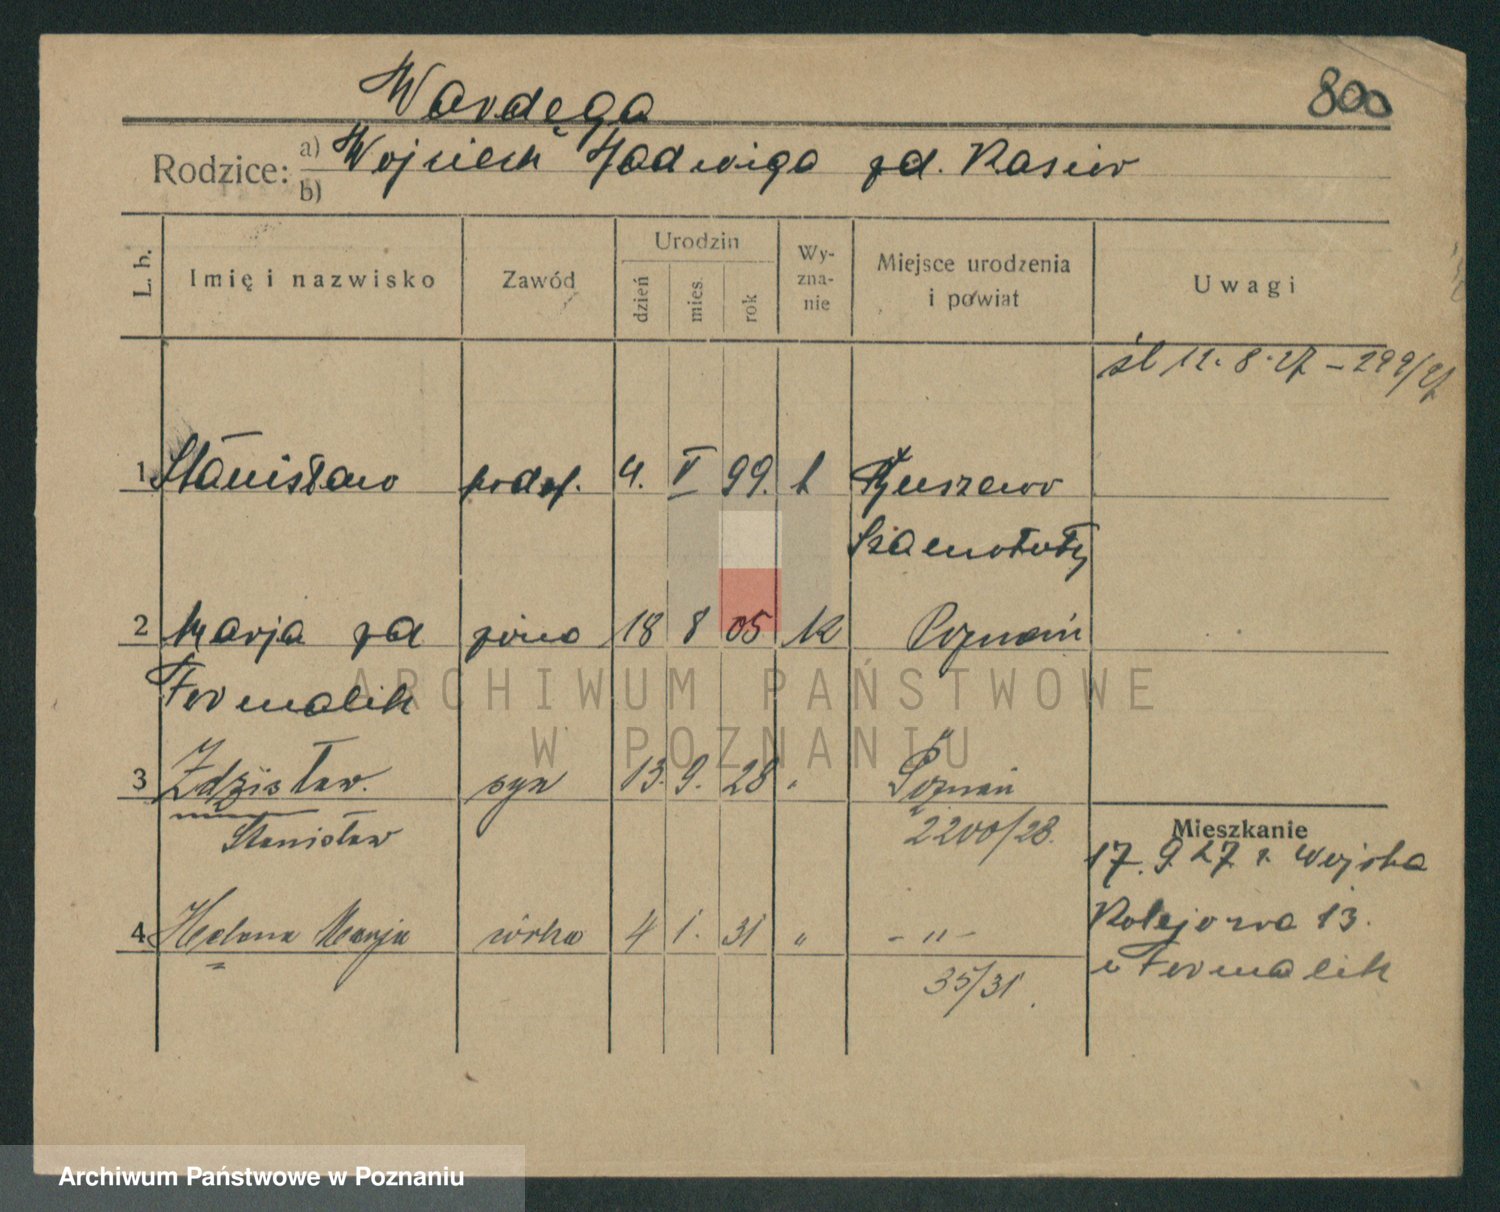 Wardęga 800
Rodzice: a) Wojciech Jadwiga zd. Kasior
b)
L. b. Imię i nazwisko Zawód Urodzin Wy-zna-nie Miejsce urodzenia i powiat Uwagi
dzień mies. rok
śl 12. 8. 27 – 299/27
1 Stanisław podof. 4. V 99. k
Szamotuły
2 Marja zd żona 18 8 05 k Poznań
Formalik
3 Zdzisław. syn 13. 9. 28 " Poznań
Stanisław 2200/28.
Mieszkanie
17. 9. 27. z wojska
4 Helena Marja córka 4 1. 31 " - " -
Kolejowa 13.
35/31.
u Formalik
ARCHIWUM PAŃSTWOWE
W POZNANIU
Archiwum Państwowe w Poznaniu